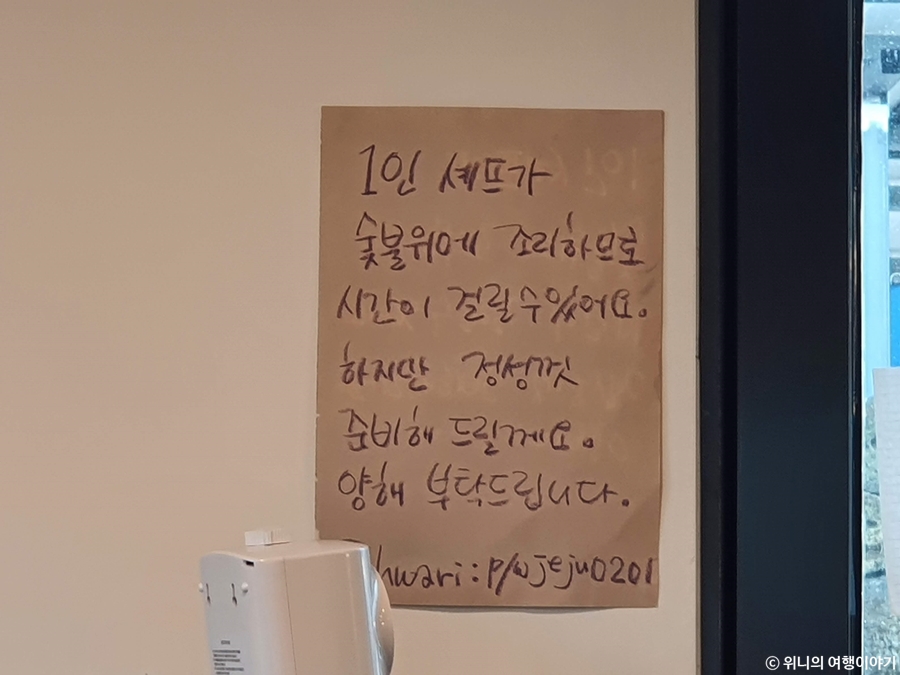 1인 셰프가
숯불위에 조리하므로
시간이 걸릴수있어요.
하지만 정성껏
준비해 드릴께요.
양해 부탁드립니다.
hwari : p/w jeju0201
© 위니의 여행이야기